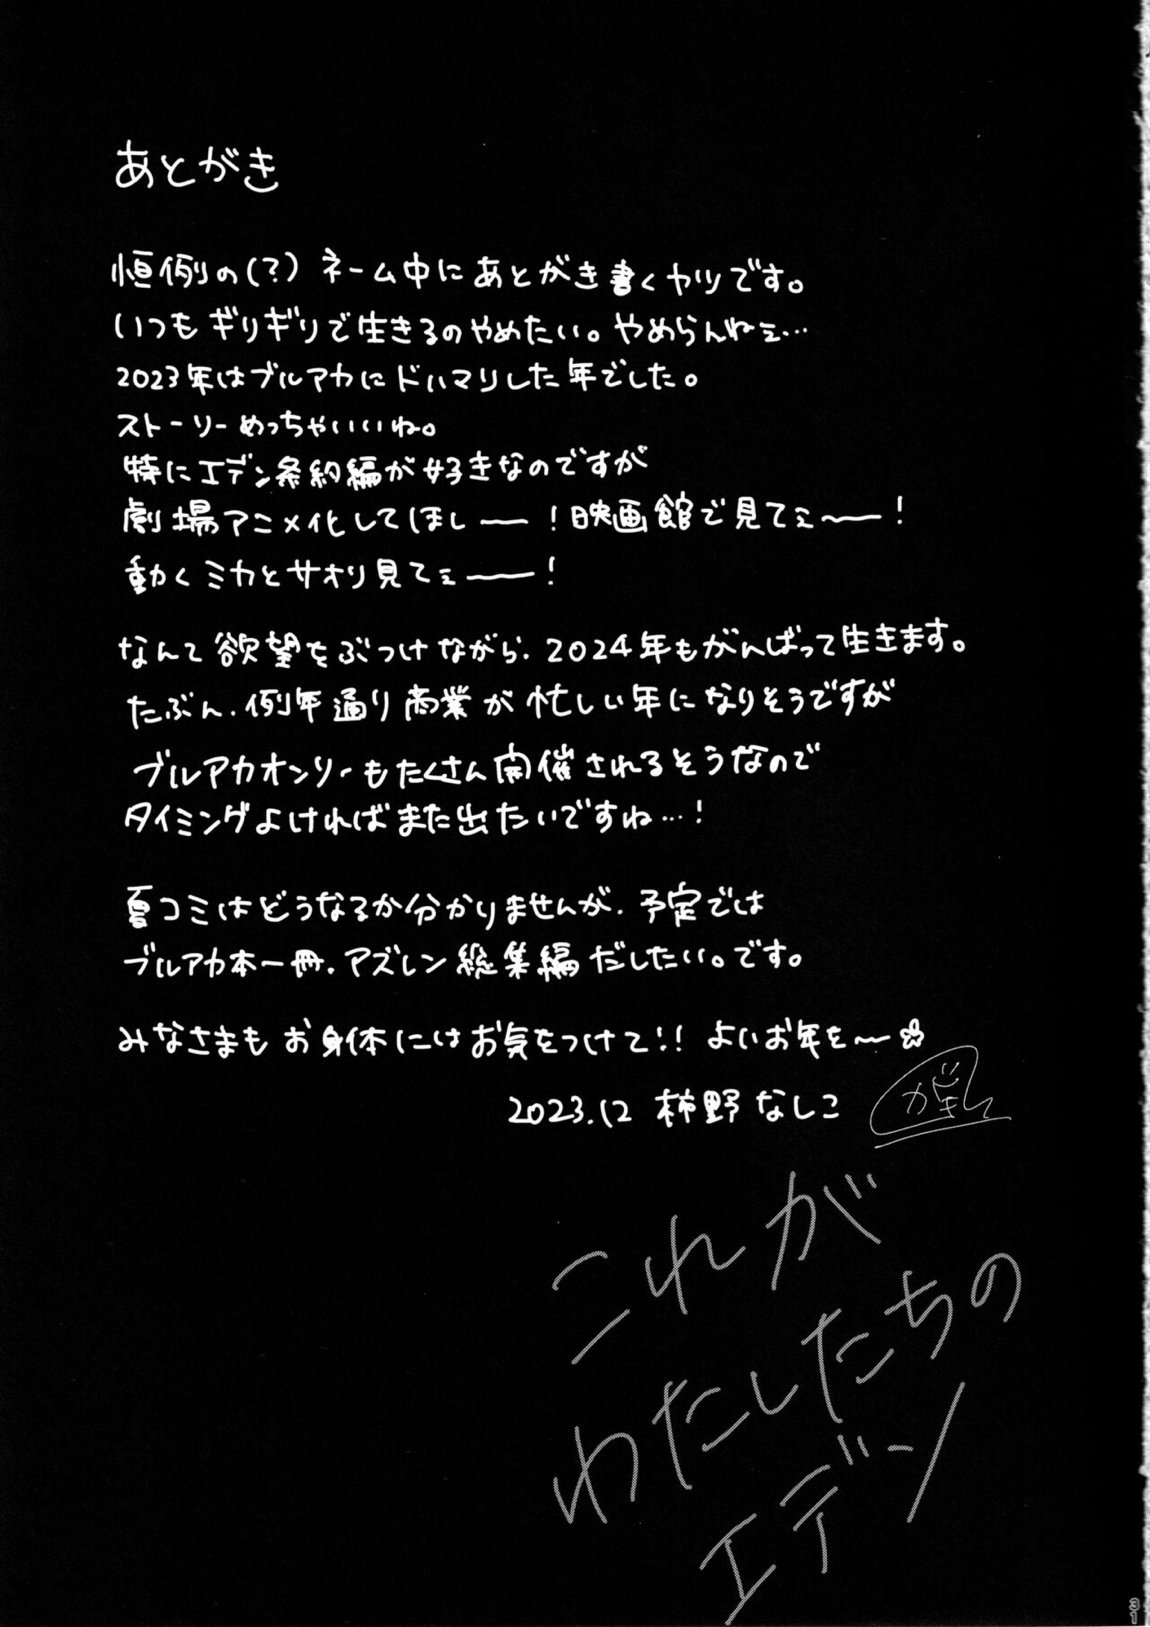 あとがき
恒例の(?)ネーム中にあとがき書くヤツです。
いつもギリギリで生きるのやめたい。やめらんねぇ…
2023年はブルアカにドハマリした年でした。
ストーリーめっちゃいいね。
特にエデン条約編が好きなのですが
劇場アニメ化してほしー!映画館で見てぇ〜ー!
動くミカとサオリ見てぇーー!
なんて欲望をぶつけながら、2024年もがんばって生きます。
たぶん、例年通り商業が忙しい年になりそうですが
ブルアカオンリーもたくさん開催されるそうなので
タイミングよければまた出たいですね…!
夏コミはどうなるか分かりませんが、予定では
ブルアカ本一冊、アズレン総集編だしたい。です。
みなさまもお身体にはお気をつけて!! よいお年を〜☆
2023.12 柿野なしこ
これが
わたしたちの
エデン
31